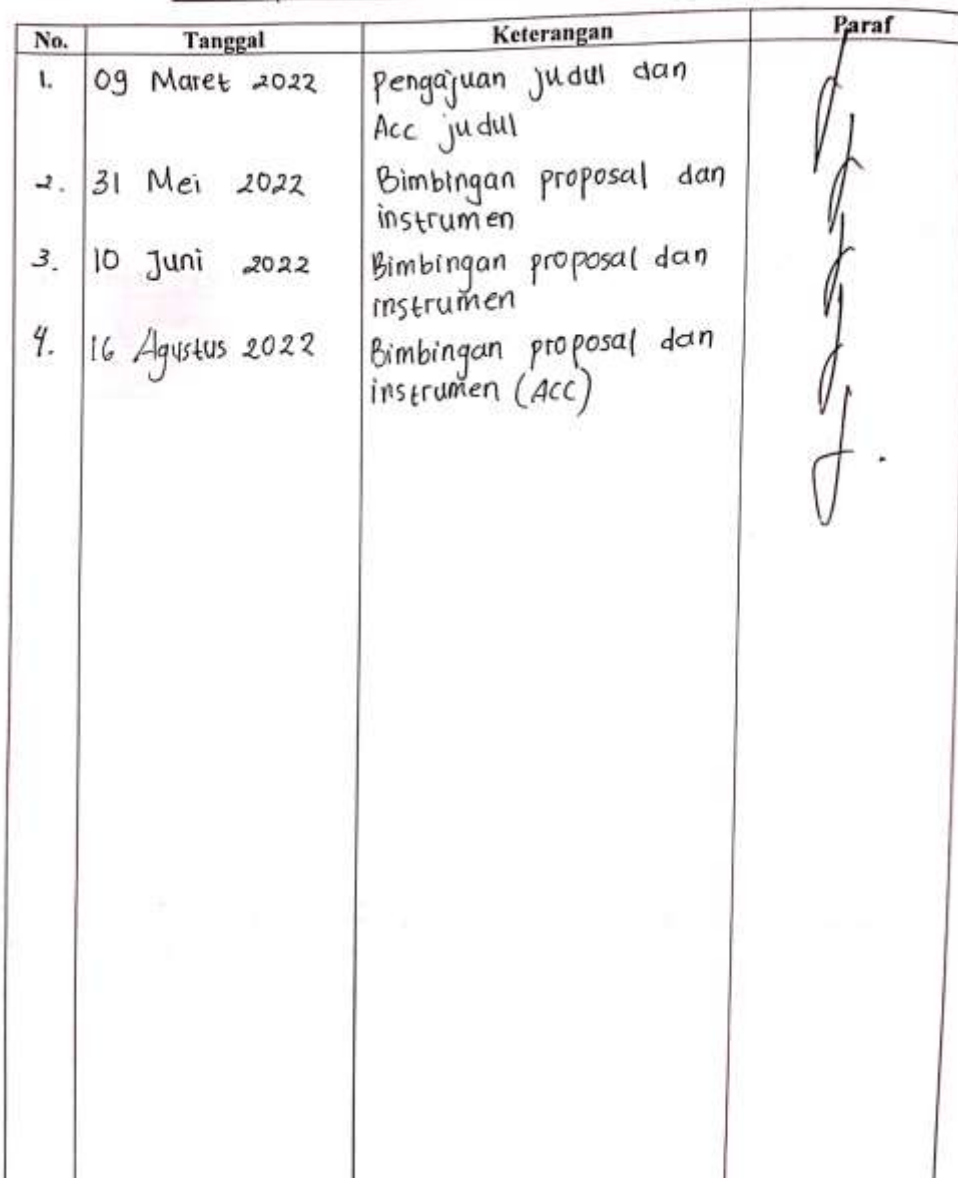 No. Tanggal Keterangan Paraf
1. 09 Maret 2022 Pengajuan judul dan
Acc judul
2. 31 Mei 2022 Bimbingan proposal dan
instrumen
3. 10 Juni 2022 Bimbingan proposal dan
instrumen
4. 16 Agustus 2022 Bimbingan proposal dan
instrumen (ACC)